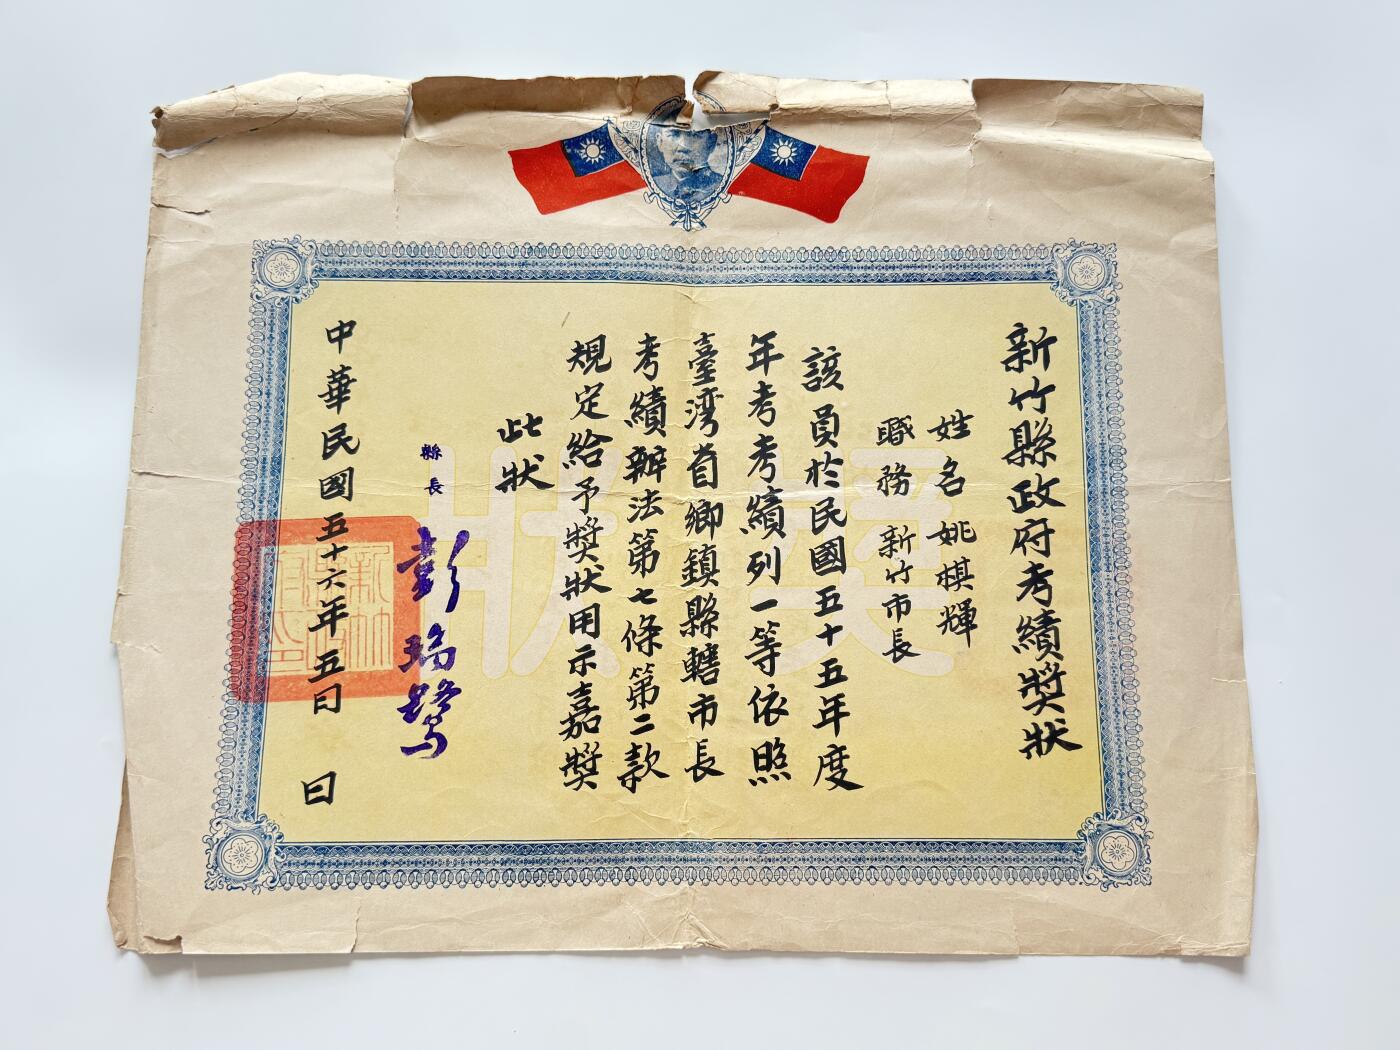 新竹縣政府考績獎狀
姓名姚棋輝
職務新竹市長
該員於民國五十五年度
年考考績列一等依照
臺灣省鄉鎮縣轄市長
考績辦法第七條第二款
規定給予獎狀用示嘉獎
此狀
縣長
彭瑞鷺
中華民國五十六年五月 日
獎狀